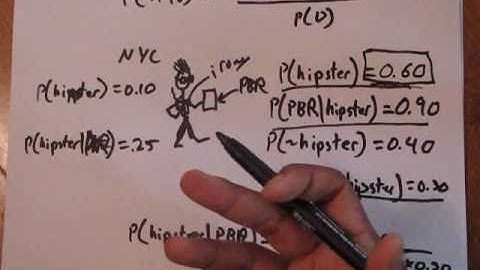 P(D)
NYC
irony
PBR
P(hipster) = 0.10
P(hipster|PBR) = .25
P(hipster) = 0.60
P(PBR|hipster) = 0.90
P(~hipster) = 0.40
hipster) = 0.20
P(hipster|PBR) =
0.20